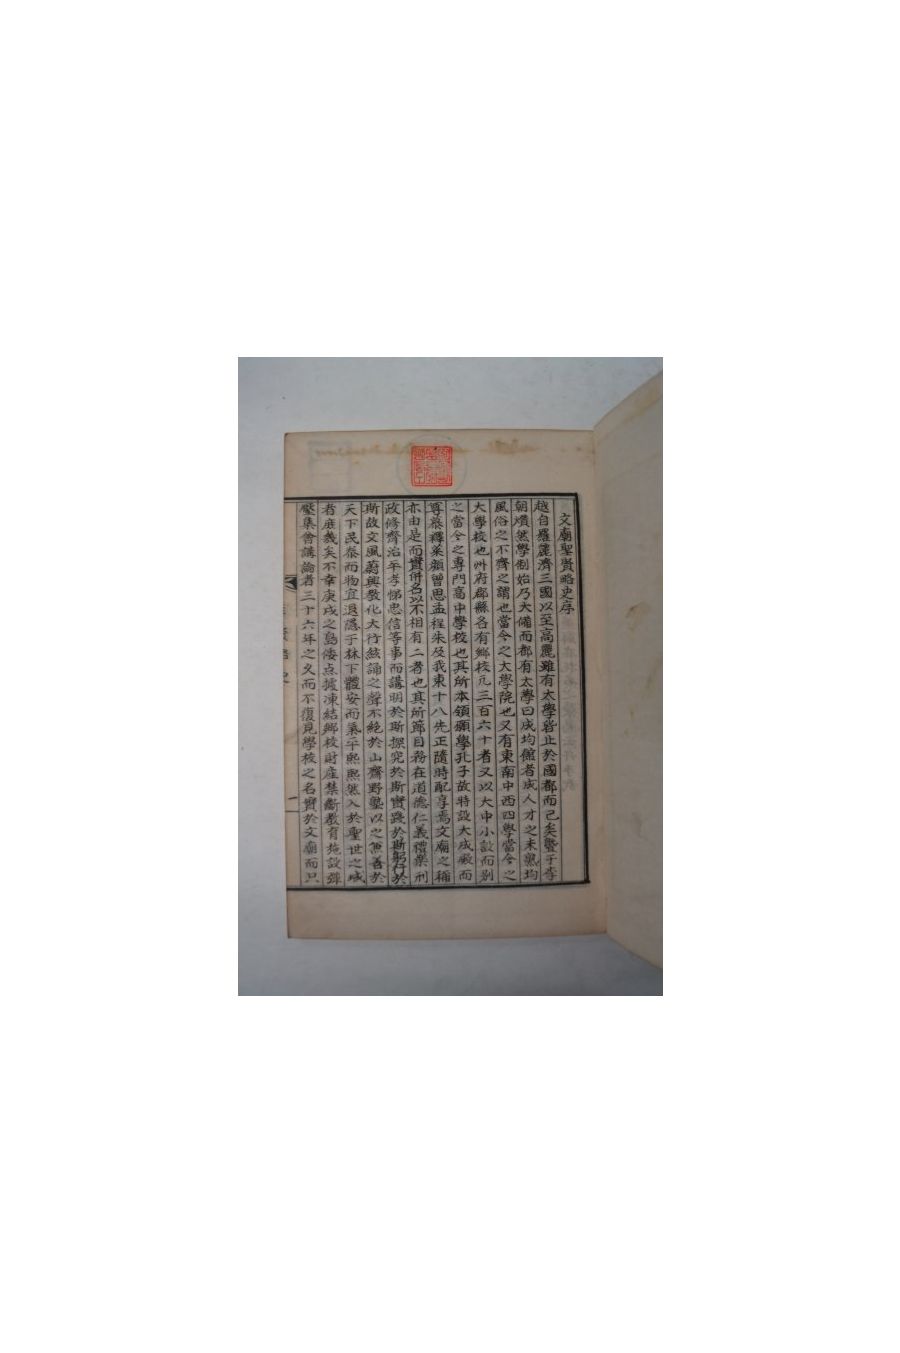 文廟聖賢略史序
越自羅麗濟三國以至高麗雖有太學皆止於國都而已矣曁于李
朝燦然學制始乃大備而都有太學曰成均館者成人才之未熟均
風俗之不齊之謂也當今之大學院也又有東南中西四學當今之
大學校也州府郡縣各有鄕校凡三百六十者又以大中小設而別
之當今之專門高中學校也其所本領願學孔子故特設大成殿而
尊慕釋菜顔曾思孟程朱及我東十八先正隨時配享焉文廟之稱
亦由是而實併名以不相有二者也其所節目務在道德仁義禮樂刑
政修齊治平孝悌忠信等事而講明於斯探究於斯實踐於斯躬行於
斯故文風蔚興敎化大行絃誦之聲不絶於山齋野塾以之無善於
天下民泰而物宜退隱于林下體安而氣平熙熙然入於聖世之域
者庶幾矣不幸庚戌之島倭点據凍結鄕校財産禁斷敎育施設彈
壓集會講論者三十六年之久而不復見學校之名實於文廟而只